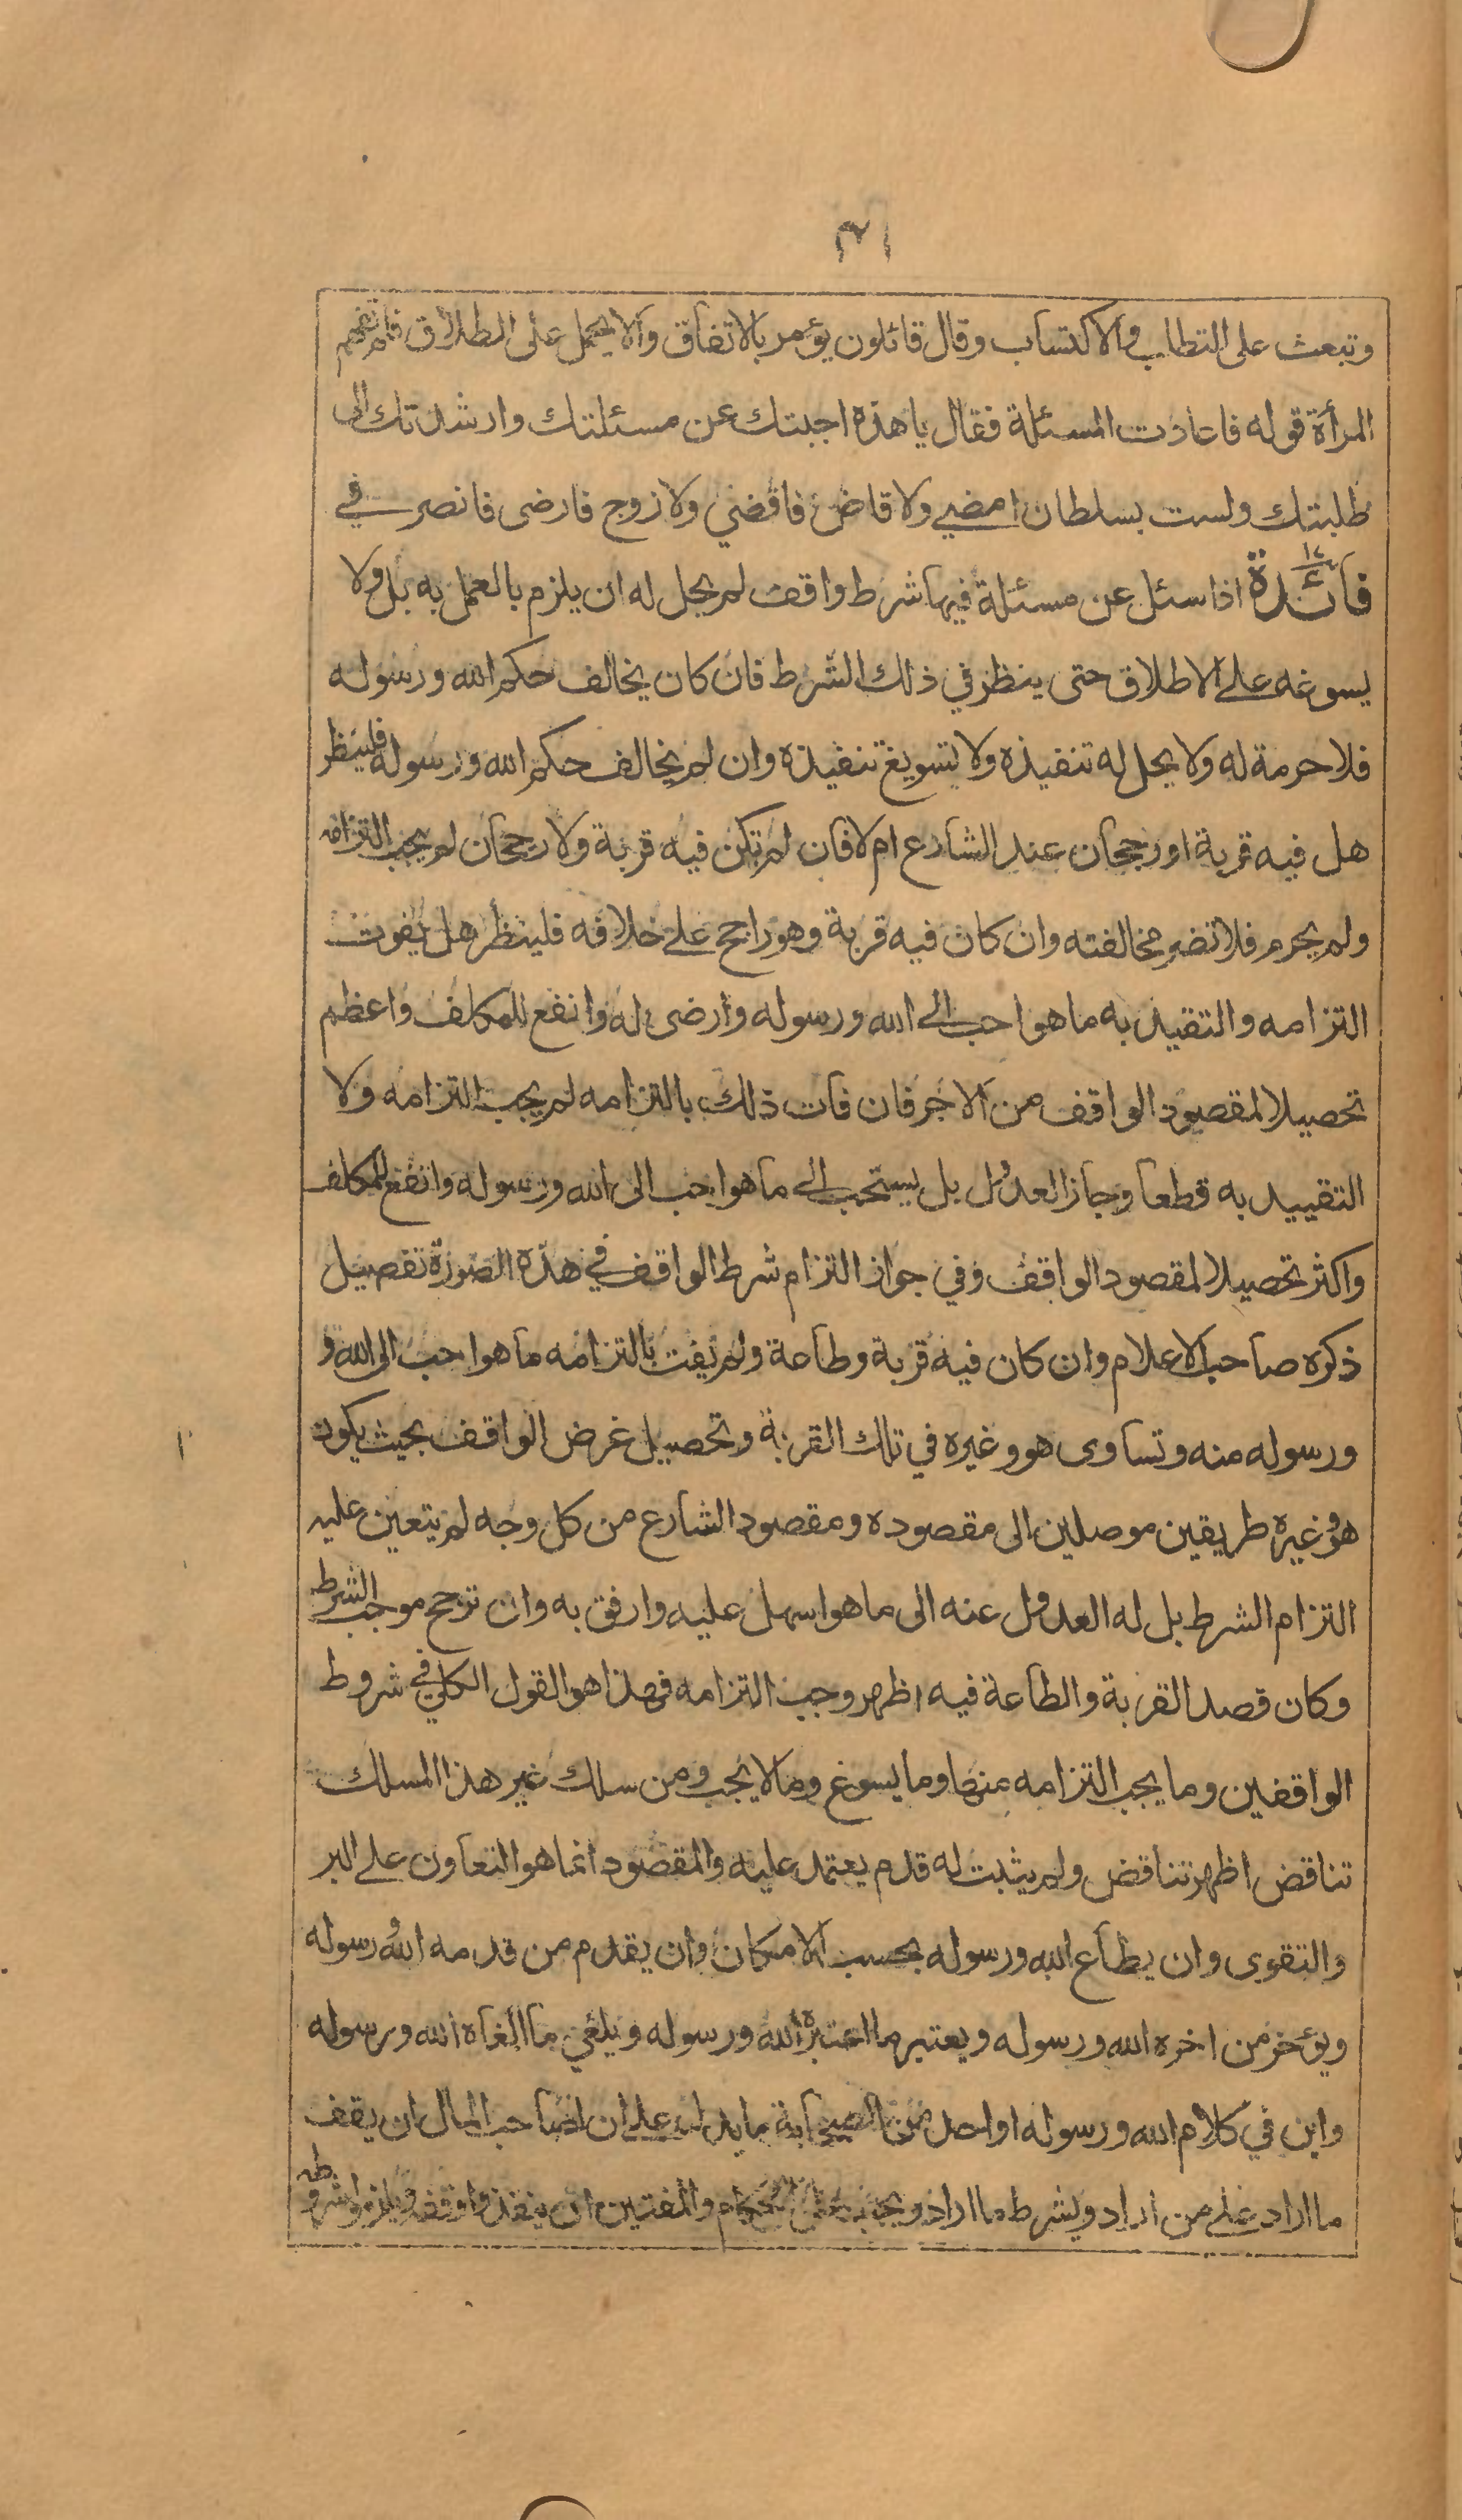 ٣١
وتبعث على التطلب والاكتساب وقال قائلون يؤمر بالاتفاق والا يحمل على الطلاق فلم تفهم
المرأة قوله فاعادت المسئلة فقال يا هذه اجبتك عن مسئلتك وارشدتك الى
طلبتك ولست بسلطان امضي ولا قاض فاقضي ولا زوج فارضى فانصرفي
فائدة ١٧ اذا سئل عن مسئلة فيها شرط واقف لم يحل له ان يلزم بالعمل به بل ولا
يسوغه على الاطلاق حتى ينظر في ذلك الشرط فان كان يخالف حكم الله ورسوله
فلا حرمة له ولا يحل له تنفيذه ولا تسويغ تنفيذه وان لم يخالف حكم الله ورسوله فلينظر
هل فيه قربة او رجحان عند الشارع ام لا فان لم تكن فيه قربة ولا رجحان لم يجب التزامه
ولم يحرم فلا تضر مخالفته وان كان فيه قربة وهو راجح على خلافه فلينظر هل يفوت
التزامه والتقيد به ما هو احب الى الله ورسوله وارضى له وانفع للمكلف واعظم
تحصيلا لمقصود الواقف من الاجر فان فات ذلك بالتزامه لم يجب التزامه ولا
التقييد به قطعا وجاز العدول بل يستحب الى ما هو احب الى الله ورسوله وانفع للمكلف
واكثر تحصيلا لمقصود الواقف وفي جواز التزام شرط الواقف في هذه الصورة تفصيل
ذكره صاحب الاعلام وان كان فيه قربة وطاعة ولم يفت بالتزامه ما هو احب الى الله و
ورسوله منه وتساوى هو وغيره في تلك القربة وتحصيل غرض الواقف بحيث يكون
هو وغيره طريقين موصلين الى مقصوده ومقصود الشارع من كل وجه لم يتعين عليه
التزام الشرط بل له العدول عنه الى ما هو اسهل عليه وارفق به وان ترجح موجب الشرط
وكان قصد القربة والطاعة فيه اظهر وجب التزامه فهذا هو القول الكلي في شروط
الواقفين وما يجب التزامه منها وما يسوغ وما لا يجب ومن سلك غير هذا المسلك
تناقض اظهر تناقض ولم يثبت له قدم يعتمد عليه والمقصود انما هو التعاون على البر
والتقوى وان يطاع الله ورسوله بحسب الامكان وان يقدم من قدمه الله ورسوله
ويؤخر من اخره الله ورسوله ويعتبر ما اعتبره الله ورسوله ويلغي ما الغاه الله ورسوله
واين في كلام الله ورسوله او احد من الصحابة ما يدل على ان لصاحب المال ان يقف
ما اراد على من اراد ويشرط ما اراد ويجب على الحكام والمفتين ان ينفذوا وقفه ويلزموا شروطه